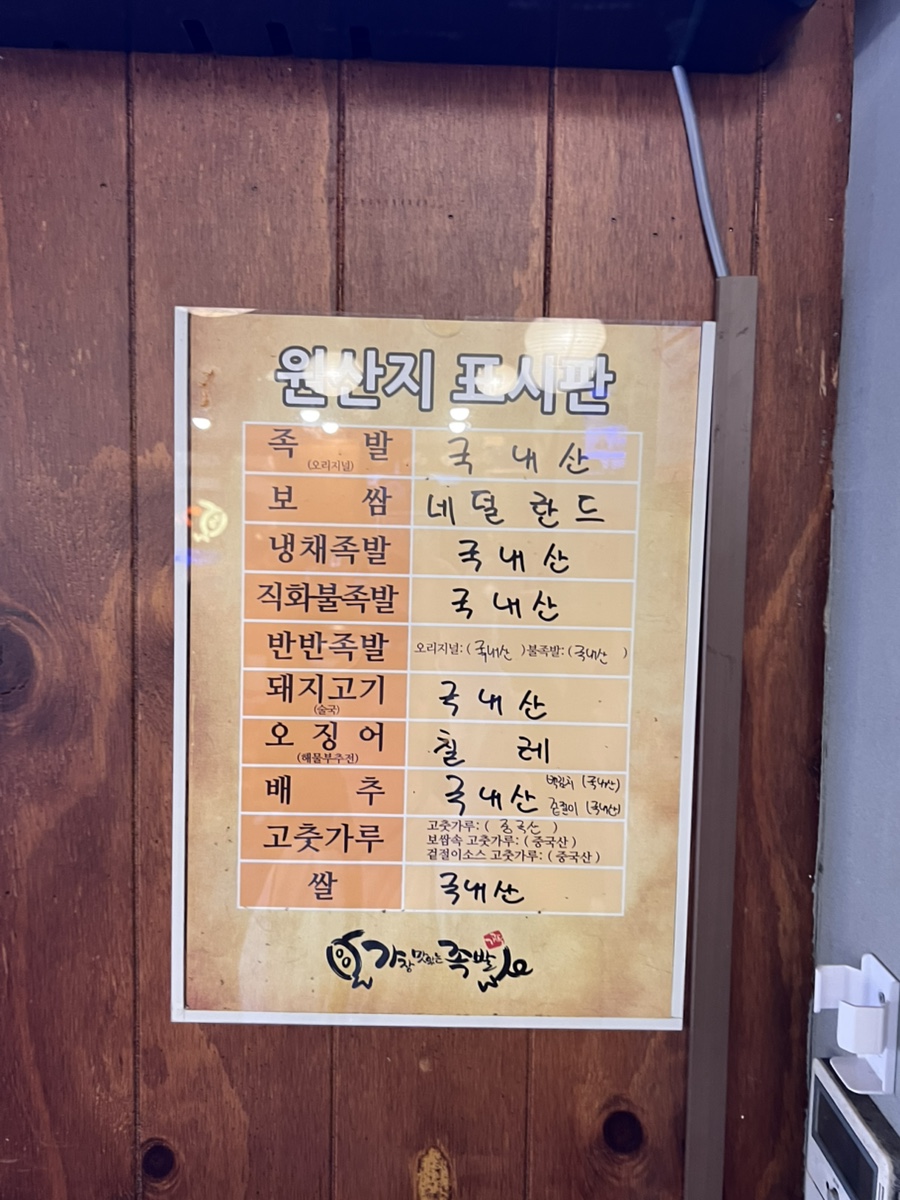 원산지 표시판
족 발 국 내 산
(오리지널)
보 쌈 네 덜 란 드
냉채족발 국 내 산
직화불족발 국 내 산
반반족발 오리지널: ( 국내산 ) 불족발: ( 국내산 )
돼지고기 국 내 산
(술국)
오 징 어 칠 레
(해물부추전)
배 추 국 내 산 백김치 (국내산)
겉절이 (국내산)
고춧가루 고춧가루: ( 중국산 )
보쌈속 고춧가루: ( 중국산 )
겉절이소스 고춧가루: ( 중국산 )
쌀 국내산
가장 맛있는 족발